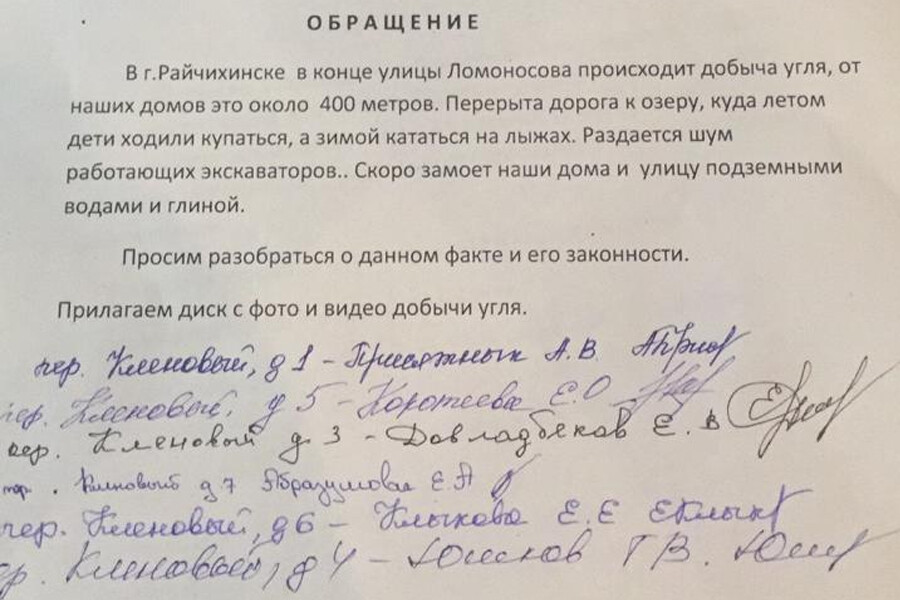 ОБРАЩЕНИЕ
В г.Райчихинске в конце улицы Ломоносова происходит добыча угля, от
наших домов это около 400 метров. Перерыта дорога к озеру, куда летом
дети ходили купаться, а зимой кататься на лыжах. Раздается шум
работающих экскаваторов.. Скоро замоет наши дома и улицу подземными
водами и глиной.
Просим разобраться о данном факте и его законности.
Прилагаем диск с фото и видео добычи угля.
пер. Кленовый, д 1 - Присяжнык А.В.
пер. Кленовый, д 5 - Коротеева Е.О
пер. Кленовый д 3 - Довладбеков Е. В
Кленовый д 7 Абразумова Е А
пер. Кленовый, д 6 - Клыкова Е. Е
пер. Кленовый, д 4 - Юшков Г В.